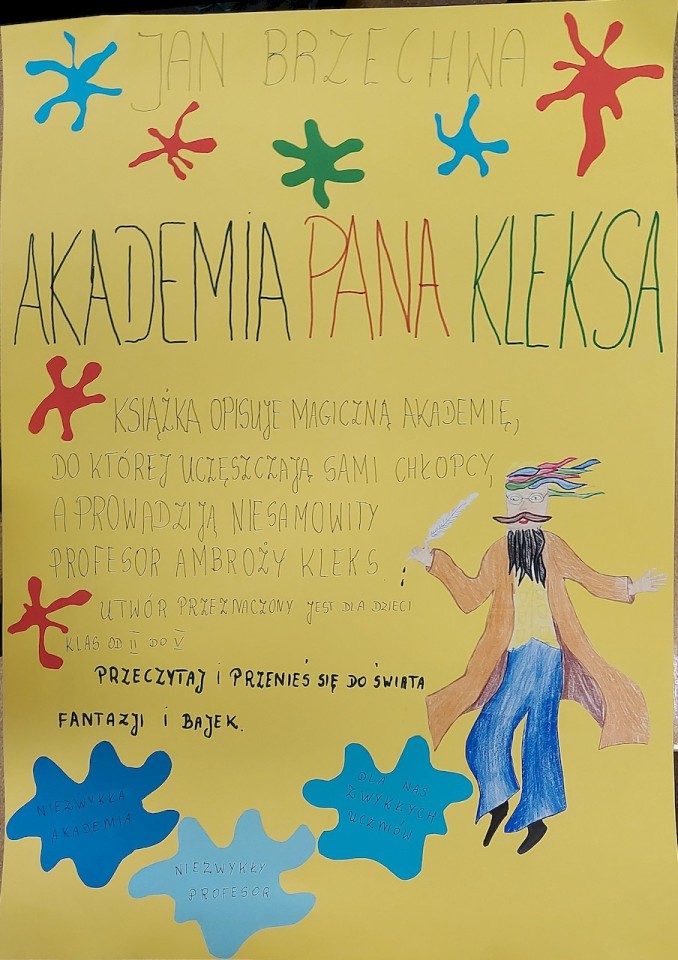 JAN BRZECHWA
AKADEMIA PANA KLEKSA
KSIĄŻKA OPISUJE MAGICZNĄ AKADEMIĘ,
DO KTÓREJ UCZĘSZCZAJĄ SAMI CHŁOPCY,
A PROWADZI JĄ NIESAMOWITY
PROFESOR AMBROŻY KLEKS.
UTWÓR PRZEZNACZONY JEST DLA DZIECI
KLAS OD II DO V
PRZECZYTAJ I PRZENIEŚ SIĘ DO ŚWIATA
FANTAZJI I BAJEK.
NIEZWYKŁA
AKADEMIA
NIEZWYKŁY
PROFESOR
DLA NAS
ZWYKŁYCH
UCZNIÓW